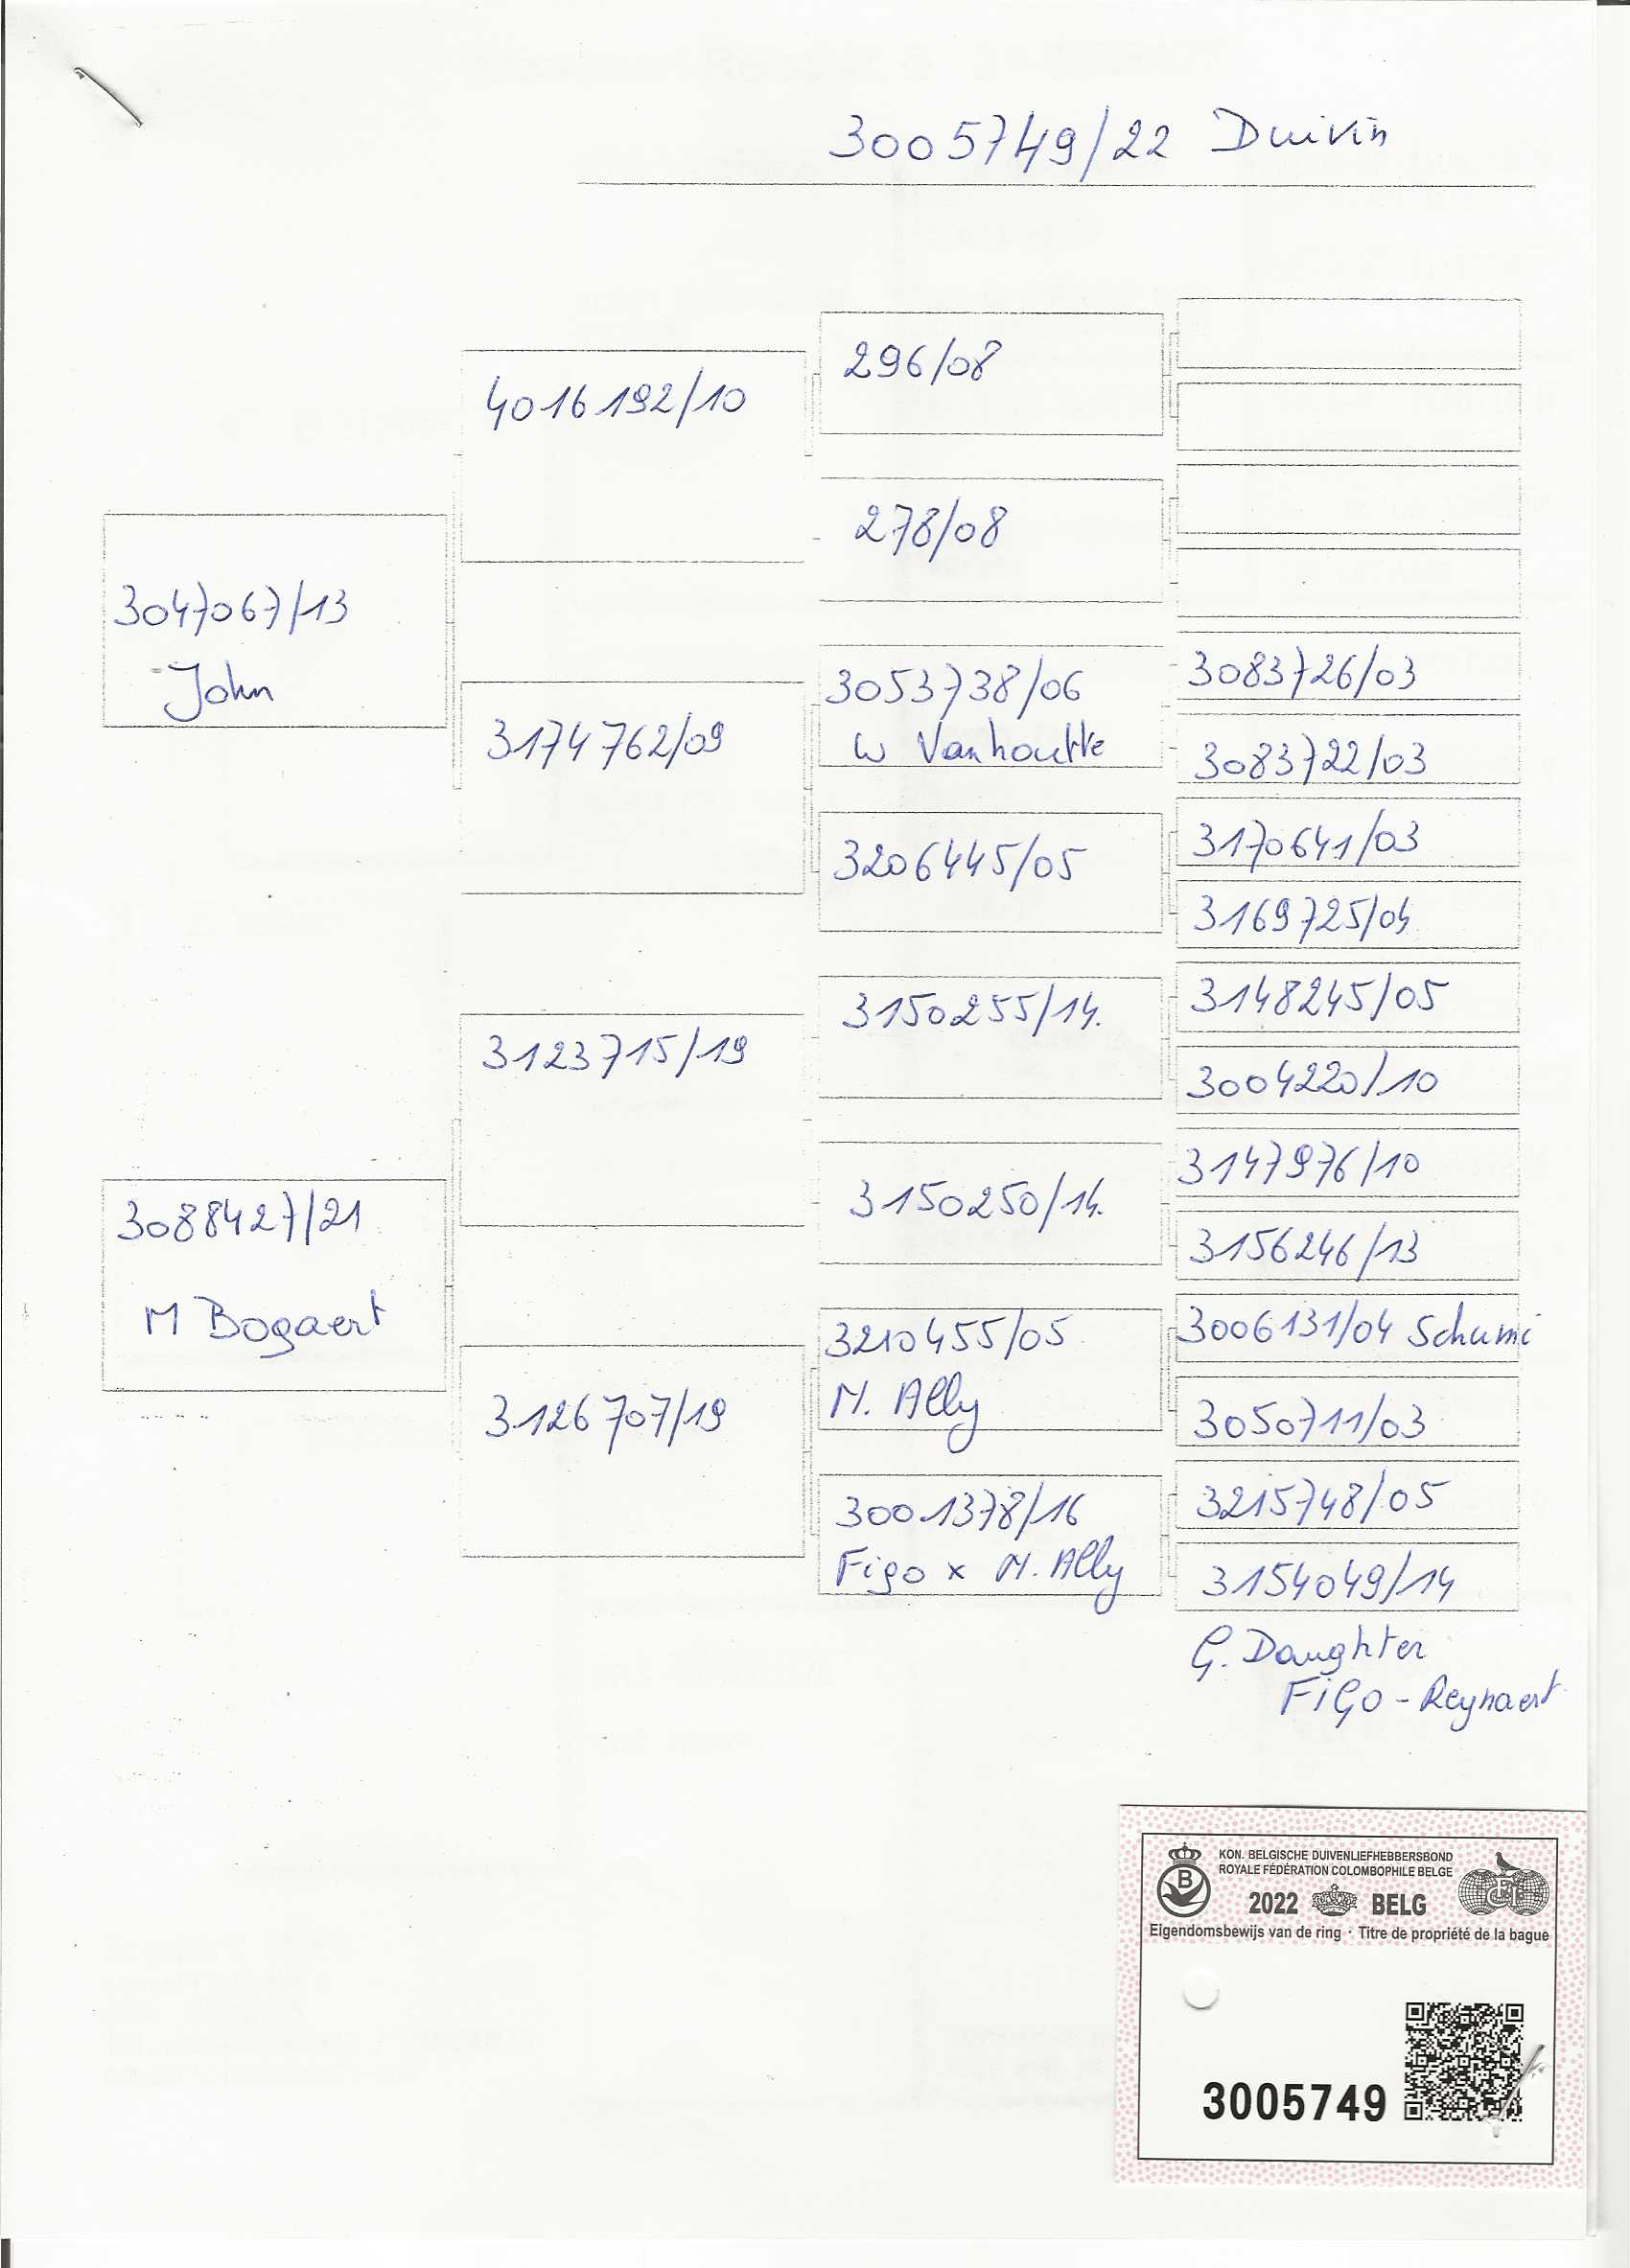 3005749/22 Duivin
296/08
4016192/10
278/08
3047067/13
John
3083726/03
3053738/06
W Vanhoutte
3174762/09
3083722/03
3170641/03
3206445/05
3169725/04
3148245/05
3150255/14.
3123715/19
3004220/10
3147976/10
3150250/14.
3088427/21
M Bogaert
3156246/13
3006131/04 Schumi
3210455/05
M. Ally
3126707/19
3050711/03
3215748/05
3001378/16
Figo x M. Ally
3154049/14
G. Daughter
FiGo - Reynaert
KON. BELGISCHE DUIVENLIEFHEBBERSBOND
ROYALE FÉDÉRATION COLOMBOPHILE BELGE
B
FCI
2022 BELG
Eigendomsbewijs van de ring · Titre de propriété de la bague
3005749